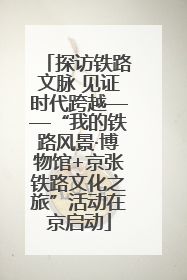 「探访铁路
文脉 见证
时代跨越—
—“我的铁
路风景·博
物馆+京张
铁路文化之
旅”活动在
京启动」